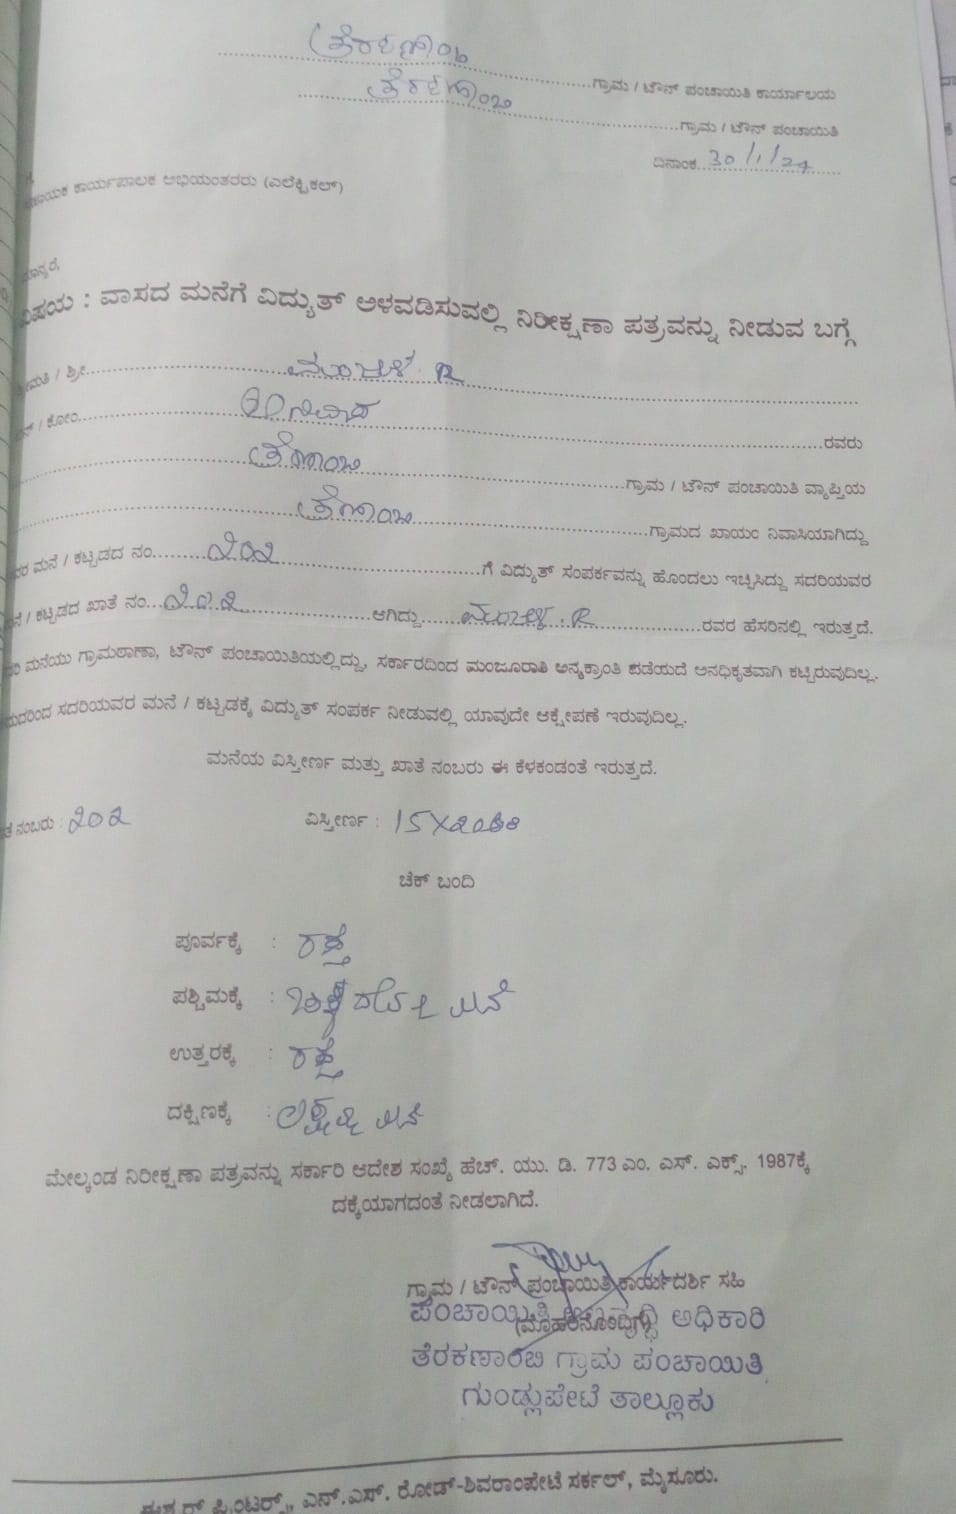 ತೆರಕಣಾಂಬಿ ಗ್ರಾಮ / ಟೌನ್ ಪಂಚಾಯಿತಿ ಕಾರ್ಯಾಲಯ
ತೆರಕಣಾಂಬಿ ಗ್ರಾಮ / ಟೌನ್ ಪಂಚಾಯಿತಿ
ದಿನಾಂಕ 30/1/24
ಕಾರ್ಯಪಾಲಕ ಅಭಿಯಂತರರು (ಎಲೆಕ್ಟ್ರಿಕಲ್)
ಮಾನ್ಯರೆ,
ವಿಷಯ : ವಾಸದ ಮನೆಗೆ ವಿದ್ಯುತ್ ಅಳವಡಿಸುವಲ್ಲಿ ನಿರೀಕ್ಷಣಾ ಪತ್ರವನ್ನು ನೀಡುವ ಬಗ್ಗೆ
/ ಶ್ರೀ ಮಂಜುಳ R
/ ಕೋಂ ರವರು
ಗ್ರಾಮ / ಟೌನ್ ಪಂಚಾಯಿತಿ ವ್ಯಾಪ್ತಿಯ
ಗ್ರಾಮದ ಖಾಯಂ ನಿವಾಸಿಯಾಗಿದ್ದು
ಮನೆ / ಕಟ್ಟಡದ ನಂ. ೨೦೩ ಗೆ ವಿದ್ಯುತ್ ಸಂಪರ್ಕವನ್ನು ಹೊಂದಲು ಇಚ್ಛಿಸಿದ್ದು ಸದರಿಯವರ
/ ಕಟ್ಟಡದ ಖಾತೆ ನಂ. ೨೦೨ ಆಗಿದ್ದು ಮಂಜುಳ . R ರವರ ಹೆಸರಿನಲ್ಲಿ ಇರುತ್ತದೆ.
ಮನೆಯು ಗ್ರಾಮಠಾಣಾ, ಟೌನ್ ಪಂಚಾಯಿತಿಯಲ್ಲಿದ್ದು, ಸರ್ಕಾರದಿಂದ ಮಂಜೂರಾತಿ ಅನ್ಯಕ್ರಾಂತಿ ಪಡೆಯದೆ ಅನಧಿಕೃತವಾಗಿ ಕಟ್ಟಿರುವುದಿಲ್ಲ.
ಸದರಿಯವರ ಮನೆ / ಕಟ್ಟಡಕ್ಕೆ ವಿದ್ಯುತ್ ಸಂಪರ್ಕ ನೀಡುವಲ್ಲಿ ಯಾವುದೇ ಆಕ್ಷೇಪಣೆ ಇರುವುದಿಲ್ಲ.
ಮನೆಯ ವಿಸ್ತೀರ್ಣ ಮತ್ತು ಖಾತೆ ನಂಬರು ಈ ಕೆಳಕಂಡಂತೆ ಇರುತ್ತದೆ.
ನಂಬರು : ೨೦೨ ವಿಸ್ತೀರ್ಣ :
ಚೆಕ್ ಬಂದಿ
ಪೂರ್ವಕ್ಕೆ : ರಸ್ತೆ
ಪಶ್ಚಿಮಕ್ಕೆ : ಮನೆ
ಉತ್ತರಕ್ಕೆ : ರಸ್ತೆ
ದಕ್ಷಿಣಕ್ಕೆ : ಮನೆ
ಮೇಲ್ಕಂಡ ನಿರೀಕ್ಷಣಾ ಪತ್ರವನ್ನು ಸರ್ಕಾರಿ ಆದೇಶ ಸಂಖ್ಯೆ ಹೆಚ್. ಯು. ಡಿ. 773 ಎಂ. ಎಸ್. ಎಕ್ಸ್. 1987ಕ್ಕೆ
ದಕ್ಕೆಯಾಗದಂತೆ ನೀಡಲಾಗಿದೆ.
ಗ್ರಾಮ / ಟೌನ್ ಪಂಚಾಯಿತಿ ಕಾರ್ಯದರ್ಶಿ ಸಹಿ
(ಮೊಹರಿನೊಂದಿಗೆ)
ಪಂಚಾಯಿತಿ ಅಭಿವೃದ್ಧಿ ಅಧಿಕಾರಿ
ತೆರಕಣಾಂಬಿ ಗ್ರಾಮ ಪಂಚಾಯಿತಿ
ಗುಂಡ್ಲುಪೇಟೆ ತಾಲ್ಲೂಕು
ಪ್ರಿಂಟರ್ಸ್, ಎನ್.ಎಸ್. ರೋಡ್-ಶಿವರಾಂಪೇಟೆ ಸರ್ಕಲ್, ಮೈಸೂರು.